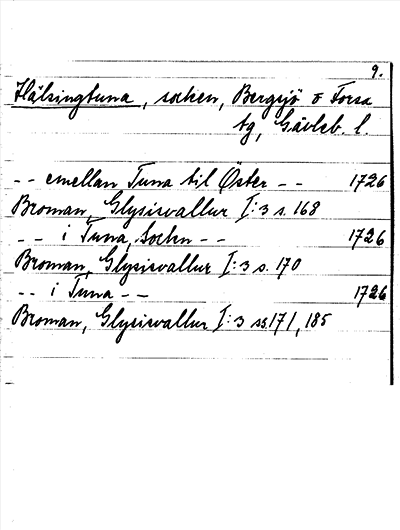 9.
Hälsingtuna, socken, Bergsjö o Forsa
tg, Gävleb. l.
-- emellan Tuna til Öster -- 1726
Broman, Glysisvallur I:3 s. 168
-- i Tuna, Sochn -- 1726
Broman, Glysisvallur I:3 s. 170
-- i Tuna -- 1726
Broman, Glysisvallur I:3 ss. 171, 185